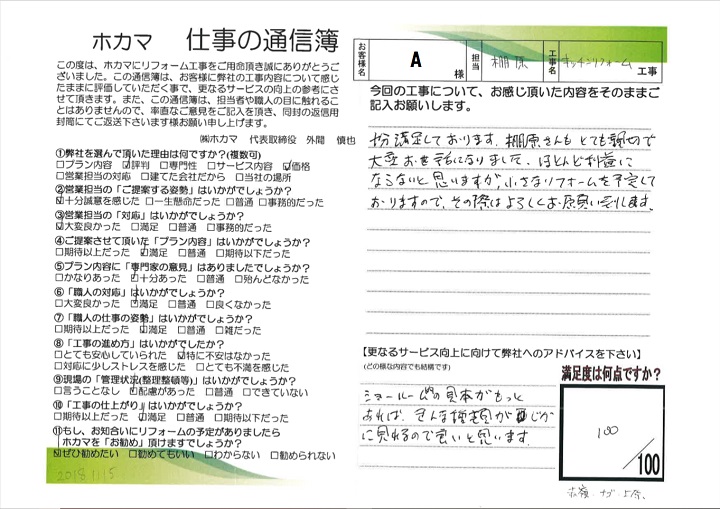 ホカマ 仕事の通信簿
この度は、ホカマにリフォーム工事をご用命頂き誠にありがとうございました。この通信簿は、お客様に弊社の工事内容について感じ
たままに評価していただく事で、更なるサービスの向上の参考にさせて頂きます。また、この通信簿は、担当者や職人の目に触れること
はありませんので、率直なご意見をご記入を頂き、同封の返信用封筒にてご返送下さいます様お願い申し上げます。
㈱ホカマ 代表取締役 外間 慎也
①弊社を選んで頂いた理由は何ですか?(複数可)
□プラン内容 ☑評判 □専門性 □サービス内容 ☑価格
□営業担当の対応 □建てた会社だから □当社の場所
②営業担当の「ご提案する姿勢」はいかがでしょうか?
☑十分誠意を感じた □一生懸命だった □普通 □事務的だった
③営業担当の「対応」はいかがでしょうか?
☑大変良かった □満足 □普通 □事務的だった
④ご提案させて頂いた「プラン内容」はいかがでしょうか?
□期待以上だった ☑満足 □普通 □期待以下だった
⑤プラン内容に「専門家の意見」はありましたでしょうか?
□かなりあった ☑十分あった □普通 □殆んどなかった
⑥「職人の対応」はいかがでしょうか?
□大変良かった ☑満足 □普通 □良くなかった
⑦「職人の仕事の姿勢」はいかがでしょうか?
□期待以上だった ☑満足 □普通 □雑だった
⑧「工事の進め方」はいかがでしたか?
□とても安心していられた ☑特に不安はなかった
□対応に少しストレスを感じた □とても不満を感じた
⑨現場の「管理状況(整理整頓等)」はいかがでしょうか?
□言うことなし ☑配慮があった □普通 □できていない
⑩「工事の仕上がり」はいかがでしょうか?
□期待以上だった ☑満足 □普通 □期待以下だった
⑪もし、お知合いにリフォームの予定がありましたら
ホカマを「お勧め」頂けますでしょうか?
☑ぜひ勧めたい □勧めてもいい □わからない □勧められない
2018 11/5
お客様名 A 様 担当 棚原 工事名 キッチンリフォーム 工事
今回の工事について、お感じ頂いた内容をそのままご記入お願いします。
十分満足しております。棚原さんもとても親切で
大変お世話になりました。ほとんど利益に
ならないと思いますが、小さなリフォームを予定して
おりますので、その際はよろしくお願い致します。
【更なるサービス向上に向けて弊社へのアドバイスを下さい】
(どの様な内容でも結構です)
ショールームの見本がもっと
あれば、
に見れるので良いと思います。
満足度は何点ですか?
100
/100